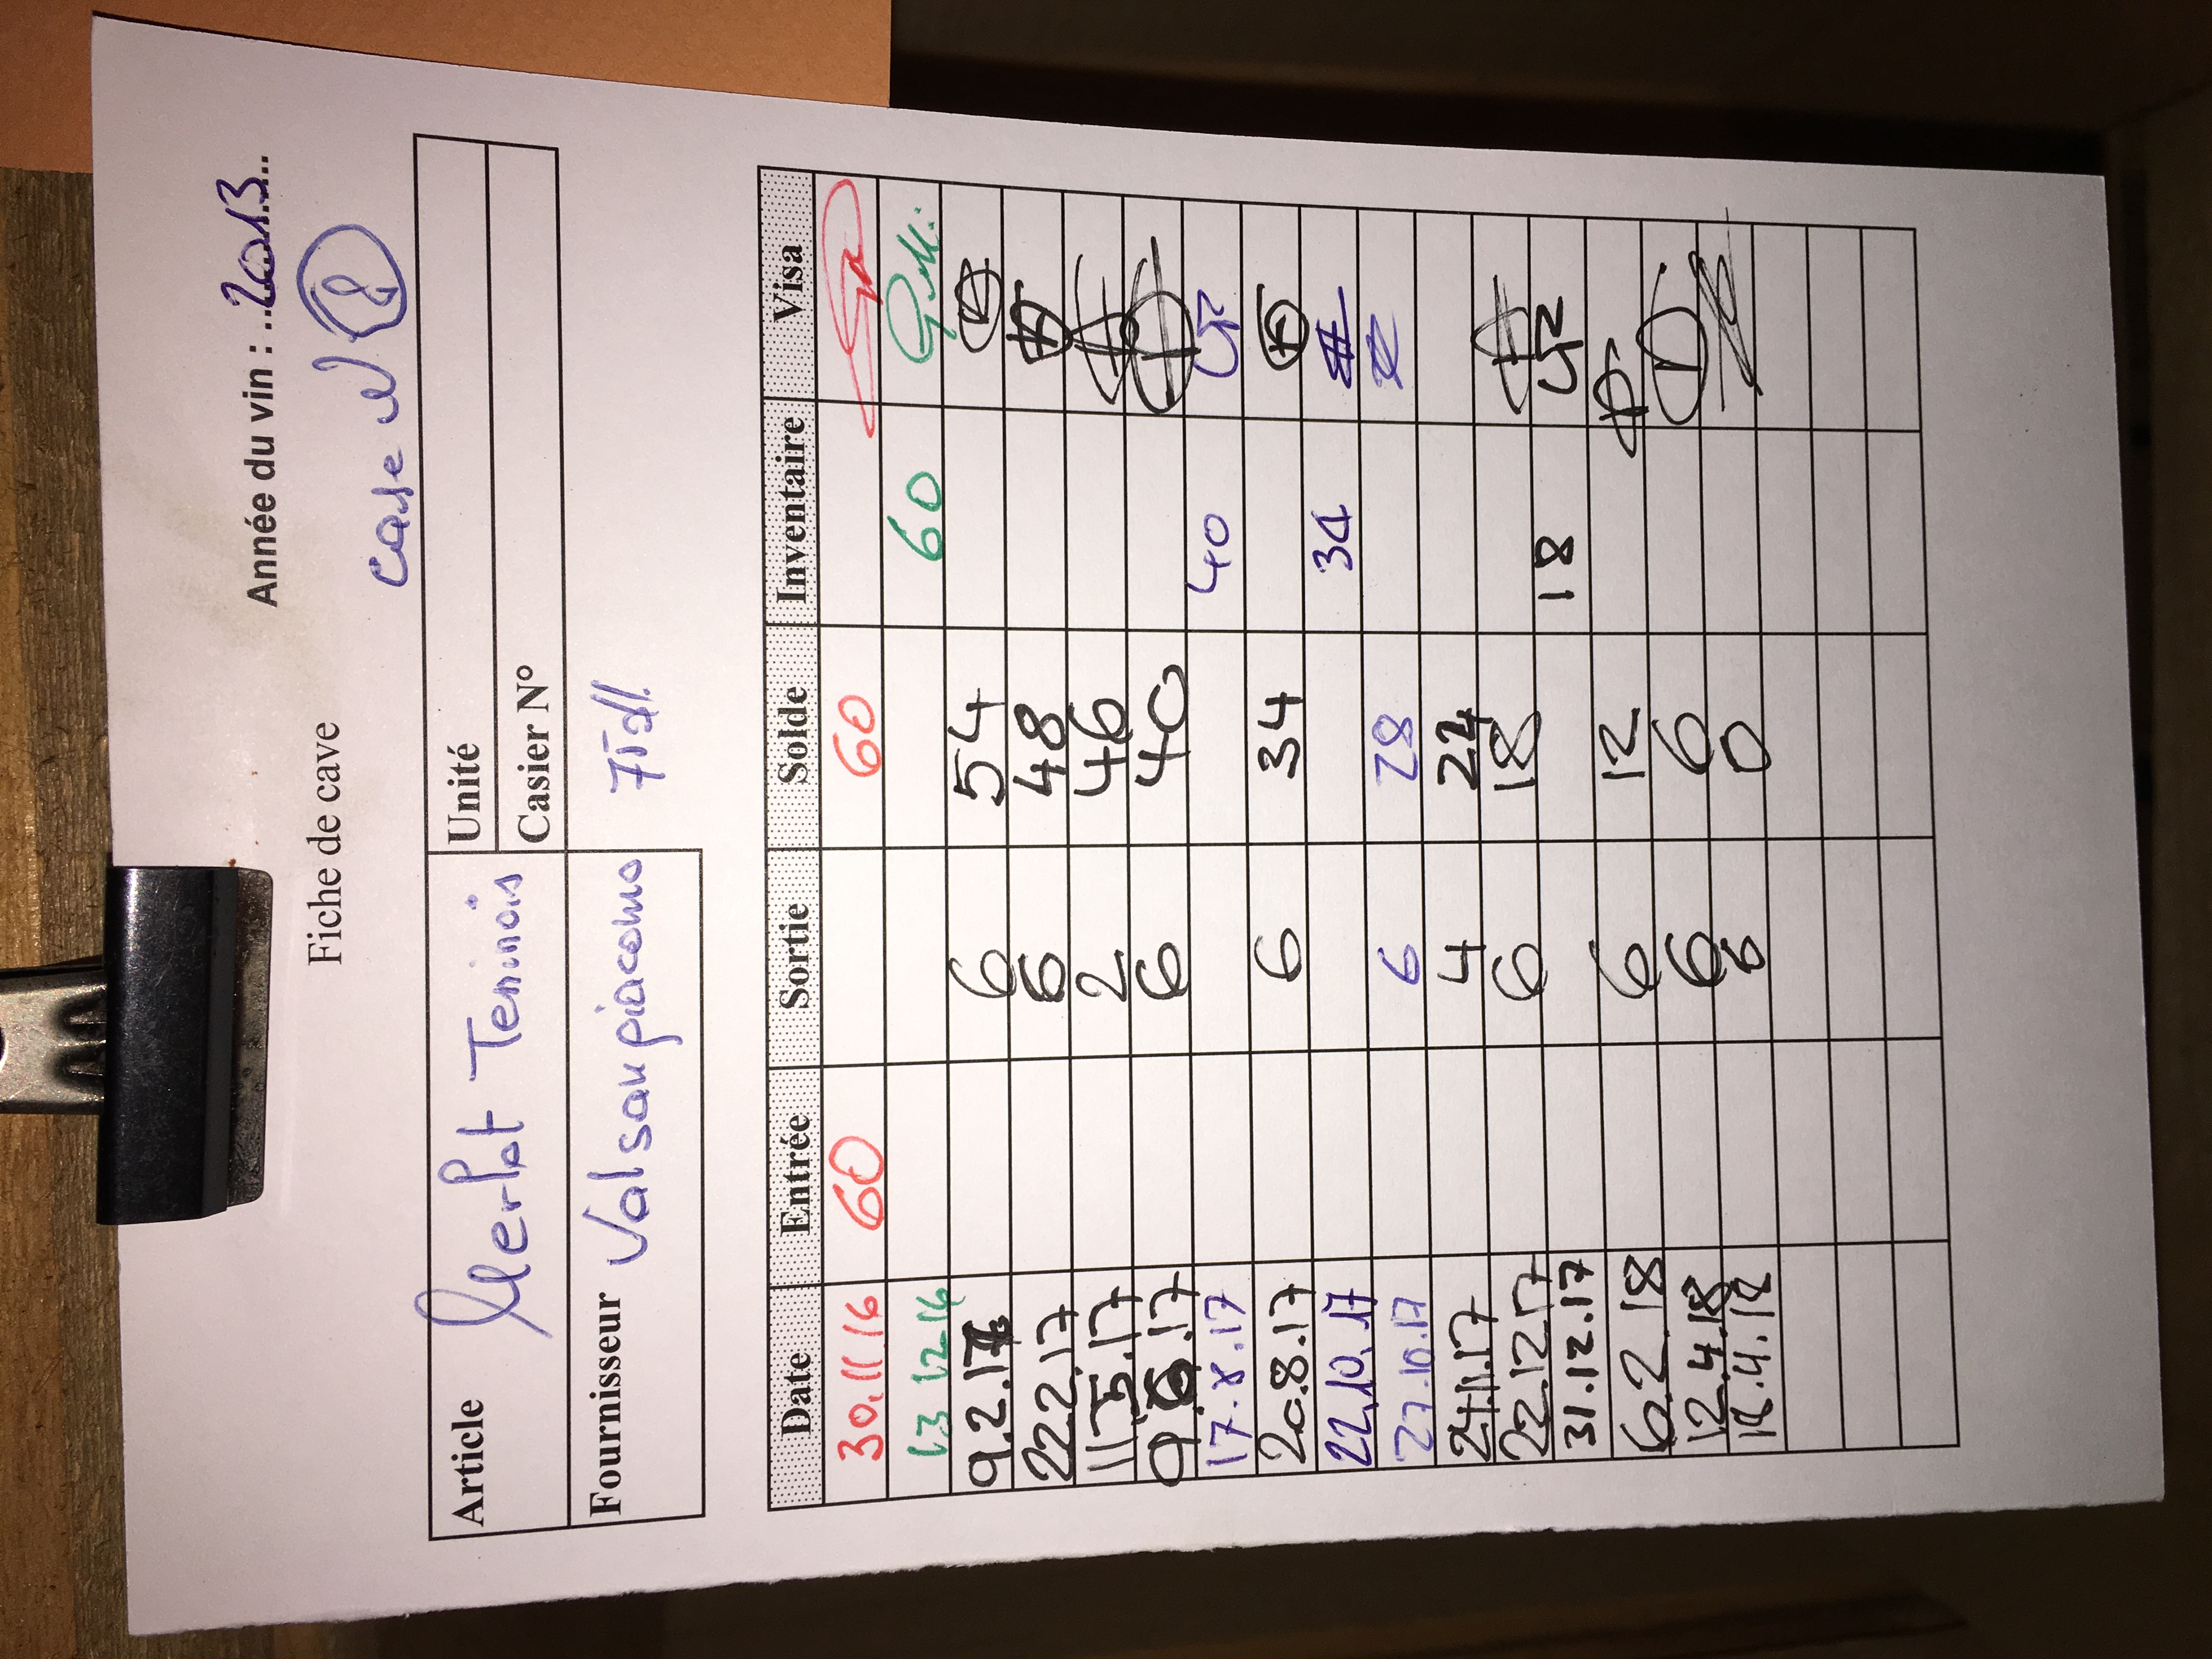 Année du vin : 2013
Fiche de cave
Case N° 8
Article Merlot Tessinois Unité
Casier N°
Fournisseur Valsangiacomo 75 dl.
Date Entrée Sortie Solde Inventaire Visa
30.11.16 60 60
13.12.16 60
9.2.17 6 54
22.2.17 6 48
11.5.17 2 46
9.6.17 6 40
17.8.17 40
20.8.17 6 34
22.10.17 34
27.10.17 6 28
24.11.17 4 24
22.12.17 6 18
31.12.17 18
6.2.18 6 12
12.4.18 6 6
18.4.18 6 0